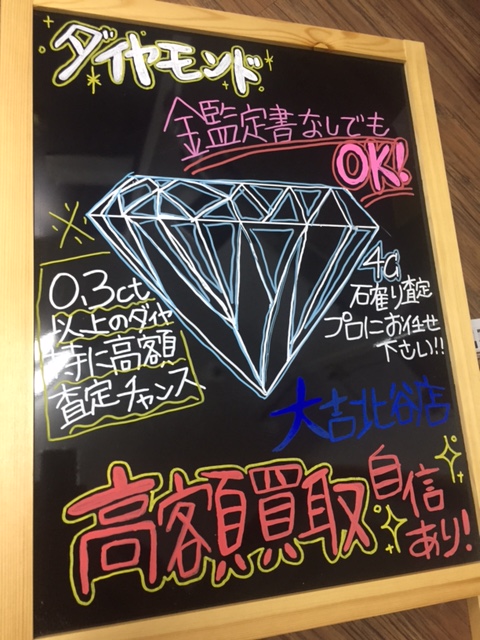 ダイヤモンド
金監定書なしでも
OK!
※
0.3ct
以上のダイヤ
特に高額
査定チャンス
4C
石雀り査定
プロにお任せ
下さい!!
大吉北谷店
高額買取
自信
あり!